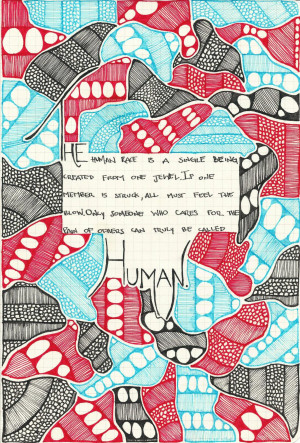 THE HUMAN RACE IS A SINGLE BEING,
CREATED FROM ONE JEWEL. IF ONE
MEMBER IS STRUCK, ALL MUST FEEL THE
BLOW. ONLY SOMEONE WHO CARES FOR THE
PAIN OF OTHERS CAN TRULY BE CALLED
HUMAN.